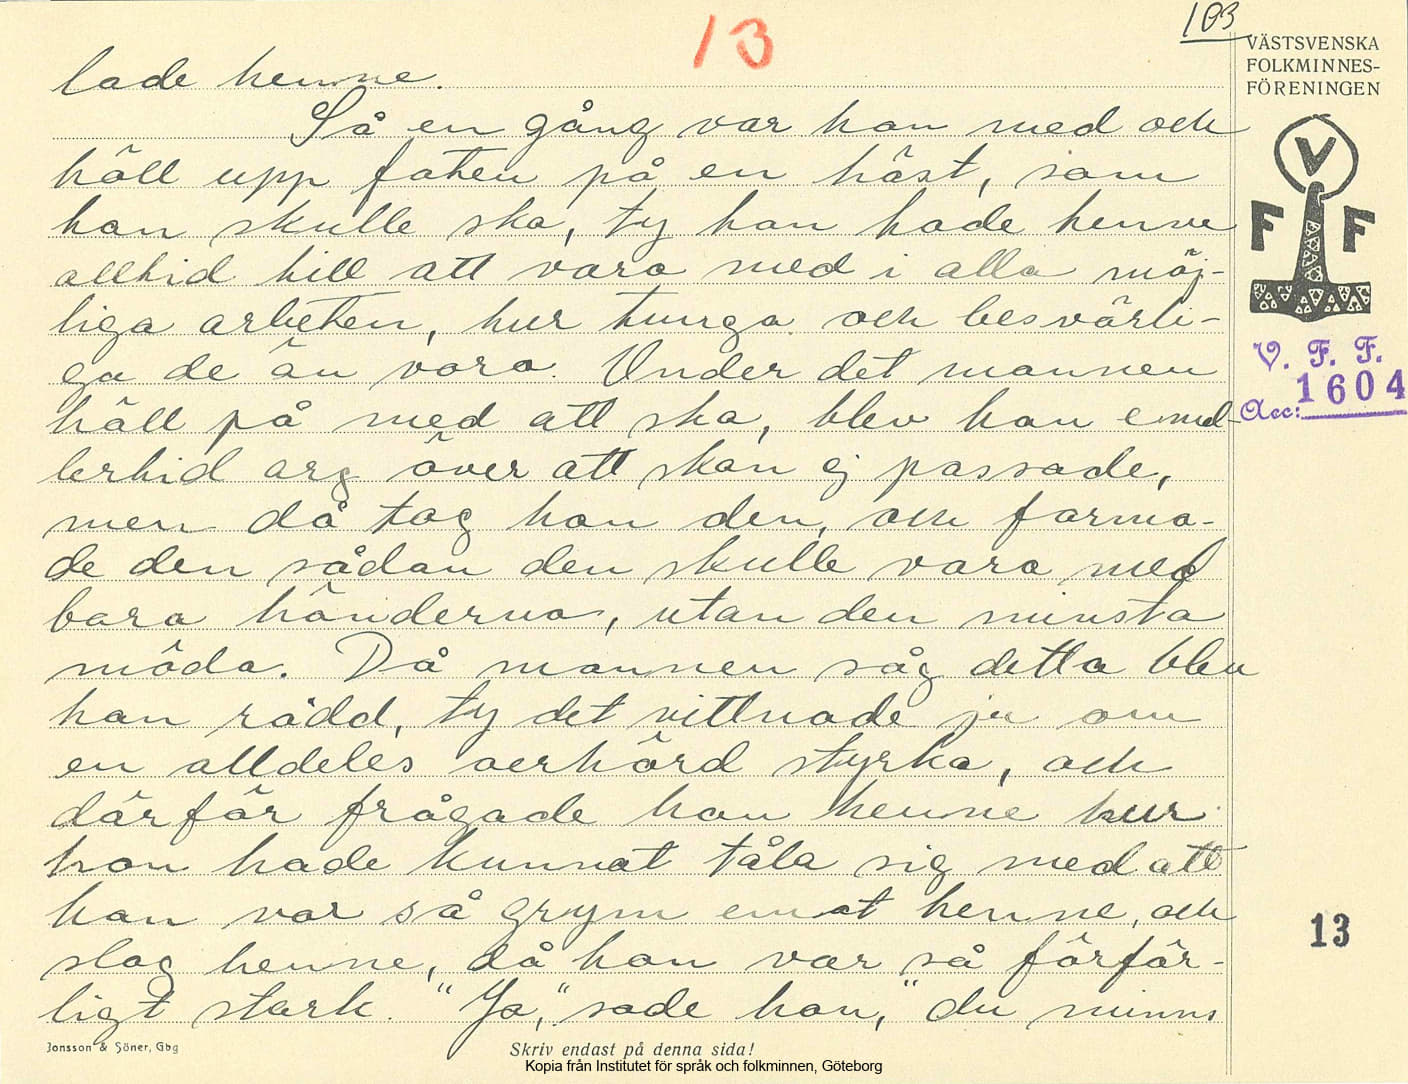 13
103
lade henne.
Så en gång var hon med och
höll upp foten på en häst, som
han skulle sko, ty han hade henne
alltid till att vara med i alla möj-
liga arbeten, hur tunga och besvärli-
ga de än voro. Under det mannen
höll på med att sko, blev han emel-
lertid arg över att skon ej passade,
men då tog hon den, och forma-
de den sådan den skulle vara med
bara händerna, utan den minsta
möda. Då mannen såg detta blev
han rädd, ty det vittnade ju om
en alldeles oerhörd styrka, och
därför frågade han henne hur
hon hade kunnat tåla sig med att
han var så grym emot henne, och
slog henne, då hon var så förfär-
ligt stark. "Jo," sade hon, "du minns
VÄSTSVENSKA
FOLKMINNES-
FÖRENINGEN
V
F F
V. F. F.
Acc: 1604
13
Jonsson & Söner, Gbg
Skriv endast på denna sida!
Kopia från Institutet för språk och folkminnen, Göteborg